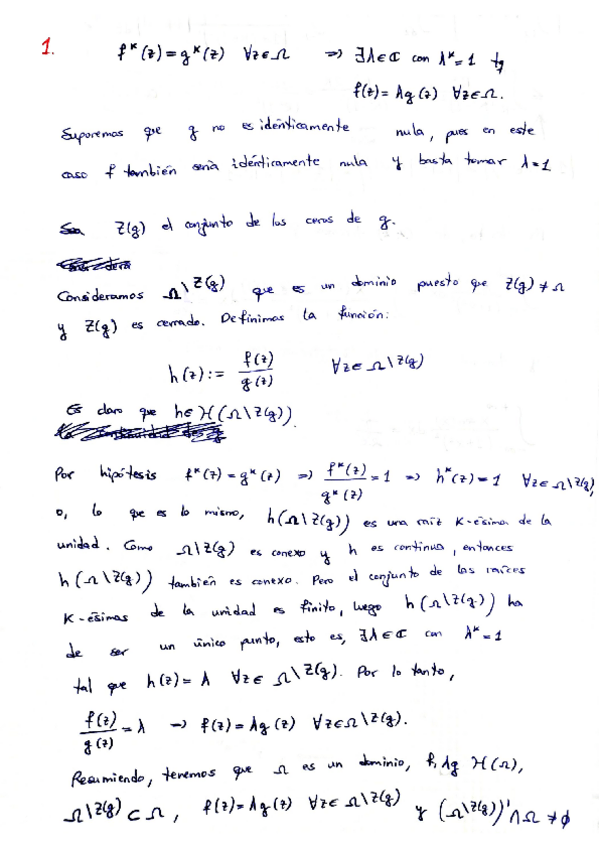 1.
f^k(z) = g^k(z) ∀z∈Ω ⇒ ∃λ∈ℂ con λ^k = 1 tq
f(z) = λg(z) ∀z∈Ω.
Suporemas que g no es idénticamente nula, pues en este
caso f también sería idénticamente nula y basta tomar λ=1
Sea Z(g) el conjunto de los ceros de g.
Consideramos Ω\Z(g) que es un dominio puesto que Z(g) ≠ Ω
y Z(g) es cerrado. Definimos la función:
h(z) := f(z)/g(z) ∀z∈Ω\Z(g)
Es claro que h∈H(Ω\Z(g)).
Por hipótesis f^k(z) = g^k(z) ⇒ f^k(z)/g^k(z) = 1 ⇒ h^k(z) = 1 ∀z∈Ω\Z(g),
o, lo que es lo mismo, h(Ω\Z(g)) es una raíz K-ésima de la
unidad. Como Ω\Z(g) es conexo y h es continua, entonces
h(Ω\Z(g)) también es conexo. Pero el conjunto de las raíces
K-ésimas de la unidad es finito, luego h(Ω\Z(g)) ha
de ser un único punto, esto es, ∃λ∈ℂ con λ^k = 1
tal que h(z) = λ ∀z∈Ω\Z(g). Por lo tanto,
f(z)/g(z) = λ → f(z) = λg(z) ∀z∈Ω\Z(g).
Resumiendo, tenemos que Ω es un dominio, f, λg H(Ω),
Ω\Z(g) ⊂ Ω, f(z) = λg(z) ∀z∈Ω\Z(g) y (Ω\Z(g))' ∩ Ω ≠ ∅